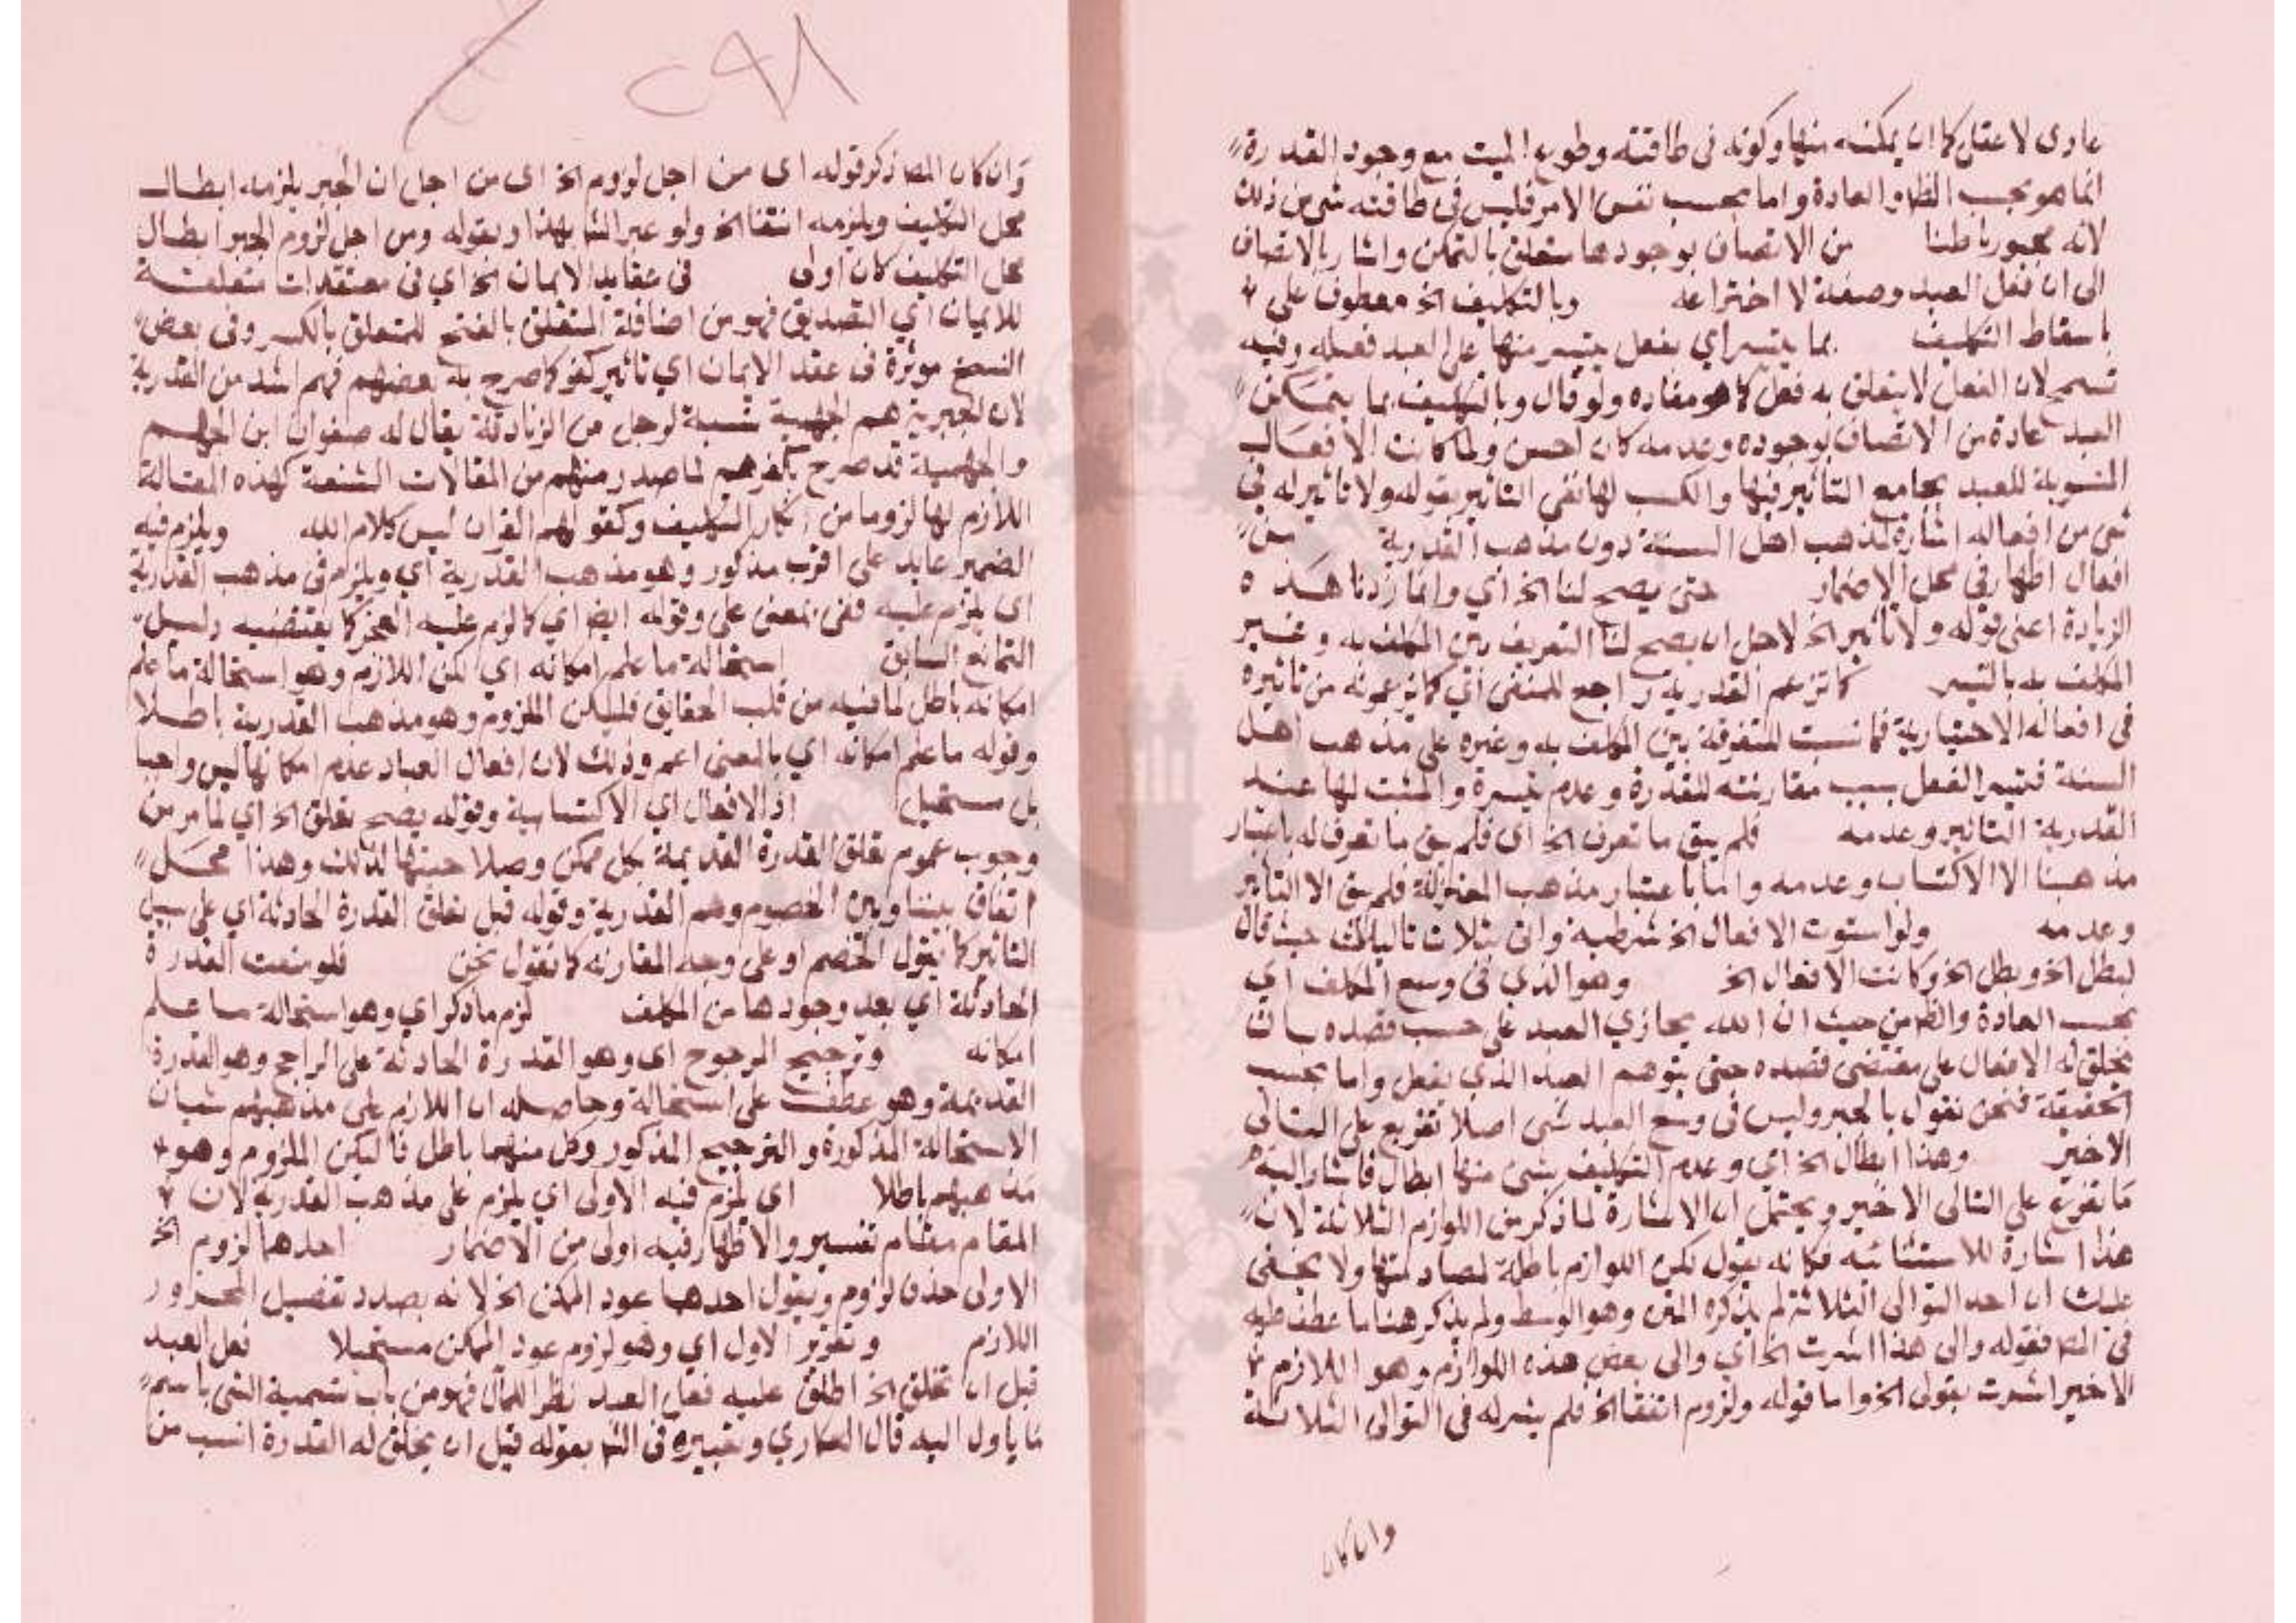 عادى لا عقل كما ان يمكنه منها وكونه فى طاقته وطوع الميت مع وجود القدرة
انما هو بحسب الظا والعادة واما بحسب نفس الامر فليس فى طاقته شى من ذلك
لانه مجبور باطنا من الاتصاف بوجودها متعلق بالتمكن واشار بالاتصاف
الى ان فعل العبد وصفة لا اختراعه وبالتكليف الخ معطوف على
باسقاط التكليف بما يتيسر اي بفعل يتيسر منها على العبد فعله وفيه
تسمح لان الفعل لا يتعلق به فعل كما هو مفاده ولو قال وبالتكليف بما يتمكن
العبد عادة من الاتصاف بوجوده وعدمه كان احسن ولما كانت الافعال
المنسوبة للعبد بجامع التاثير فيها والكسب لها نفى التاثير بقوله ولا تاثير له فى
شى من افعاله اشارة لمذهب اهل السنة دون مذهب القدرية من
افعال اظهار فى محل الاضمار حتى يصح لنا الخ اي وانما زدنا هذه
الزيادة اعنى قوله ولا تاثير الخ لاجل ان يصح لنا التعريف بين المكلف به وغير
المكلف به بالتيسر كما تزعم القدرية راجع للمنفى اي كما يزعمونه من تاثيره
فى افعاله الاختيارية فما نسبت للتفرقة بين المكلف به وغيره على مذهب اهل
السنة فتيسر الفعل بسبب مقارنته للقدرة وعدم تيسره والمثبت لها عند
القدرية التاثير وعدمه فلم يبق ما تعرف الخ اى فلم يبق ما تعرف له باعتبار
مذهبنا الا الاكتساب وعدمه واما باعتبار مذهب المعتزلة فلم يبق الا التاثير
وعدمه ولو استوت الافعال الخ شرطية واتى بثلاث تاليات حيث قال
لبطل الخ وبطل الخ وكانت الافعال الخ وهو الذي فى وسع المكلف اي
بحسب العادة والظا من حيث ان الله يجازي العبد على حسب قصده بان
يخلق له الافعال على مقتضى قصده حتى يتوهم العبد الذي يفعل واما بحسب
الحقيقة فنحن نقول بالجبر وليس فى وسع العبد شى اصلا تفريع على التالى
الاخير وهذا ابطال الخ اي وعدم التكليف بشى منها ابطال فاشار اليه
ما تفرع على التالى الاخير ويحتمل ان الاشارة لما ذكر من اللوازم الثلاثة لان
هذا اشارة للاستثنائية فكانه يقول لكن اللوازم باطلة لمصادمتها ولا يخفى
عليك ان احد التوالى الثلاثة لم يذكره المتن وهو الوسط ولم يذكر هنا ما عطف عليه
فى المتن فقوله والى هذا اشرت الخ اي والى بعض هذه اللوازم وهو اللازم
الاخير اشرت بقولى الخ واما قوله ولزوم انتفا الخ فلم يشر له فى التوالى الثلاثة
وان كان
٢٩٨
وان كان المص ذكر قوله اى من اجل لزوم الخ اى من اجل ان الجبر يلزمه ابطال
محل التكليف ويلزمه انتفا الخ ولو عبر الشا بهذا وبقوله ومن اجل لزوم الجبر ابطال
محل التكليف كان اولى فى عقايد الايمان الخ اي فى معتقدات متعلقة
للايمان اي التصديق فهو من اضافة المتعلق بالفتح للمتعلق بالكسر وفى بعض
النسخ موثرة فى عقد الايمان اي تاثير كفر كما صرح به بعضهم فهم اشد من القدرية
لان الجبرية هم الجهمية نسبة لرجل من الزنادقة يقال له صفوان ابن الجهم
والجهمية قد صرح بكفرهم لما صدر منهم من المقالات الشنعة كهذه المقالة
اللازم لها لزوما من انكار التكليف وكقولهم القران ليس كلام الله ويلزم فيه
الضمير عايد على اقرب مذكور وهو مذهب القدرية اي ويلزم فى مذهب القدرية
اى يلزم عليه ففى بمعنى على وقوله ايض اي كما لزم عليه العجز كما يقتضيه دليل
التمانع السابق استحالة ما علم امكانه اي لكن اللازم وهو استحالة ما علم
امكانه باطل لما فيه من قلب الحقايق فليكن الملزوم وهو مذهب القدرية باطلا
وقوله ما علم امكانه اي بالمعنى اعم وذلك لان افعال العباد عدم امكانها ليس واجبا
بل مستحيل اذ الافعال اي الاكتسابية وقوله يصح تعلق الخ اي لما مر من
وجوب عموم تعلق القدرة القديمة بكل ممكن وصلاحيتها لذلك وهذا محل
اتفاق بيننا وبين الخصوم وهم القدرية وقوله قبل تعلق القدرة الحادثة اي على سبيل
التاثير كما يقول الخصم او على وجه المقارنه كما نقول نحن فلو منعت القدرة
الحادثة اي بعد وجودها من المكلف لزم ما ذكر اي وهو استحالة ما علم
امكانه وترجيح المرجوح اى وهو القدرة الحادثة على الراجح وهو القدرة
القديمة وهو عطف على استحالة وحاصله ان اللازم على مذهبهم شيان
الاستحالة المذكورة والترجيح المذكور وكل منهما باطل فاليكن الملزوم وهو
مذهبهم باطلا اى يلزم فيه الاولى اي يلزم على مذهب القدرية لان
المقام مقام تفسير والاظهار فيه اولى من الاضمار احدهما لزوم الخ
الاولى حذف لزوم ويقول احدهما عود الممكن الخ لانه بصدد تفصيل المحزور
اللازم وتقرير الاول اي وهو لزوم عود الممكن مستحيلا فعل العبد
قبل ان تخلق الخ اطلق عليه فعل العبد نظرا للمآل فهو من باب تسمية الشى باسم
ما ياول اليه قال العكاري وتعبيره فى الشا بقوله قبل ان يخلق له القدرة انسب من